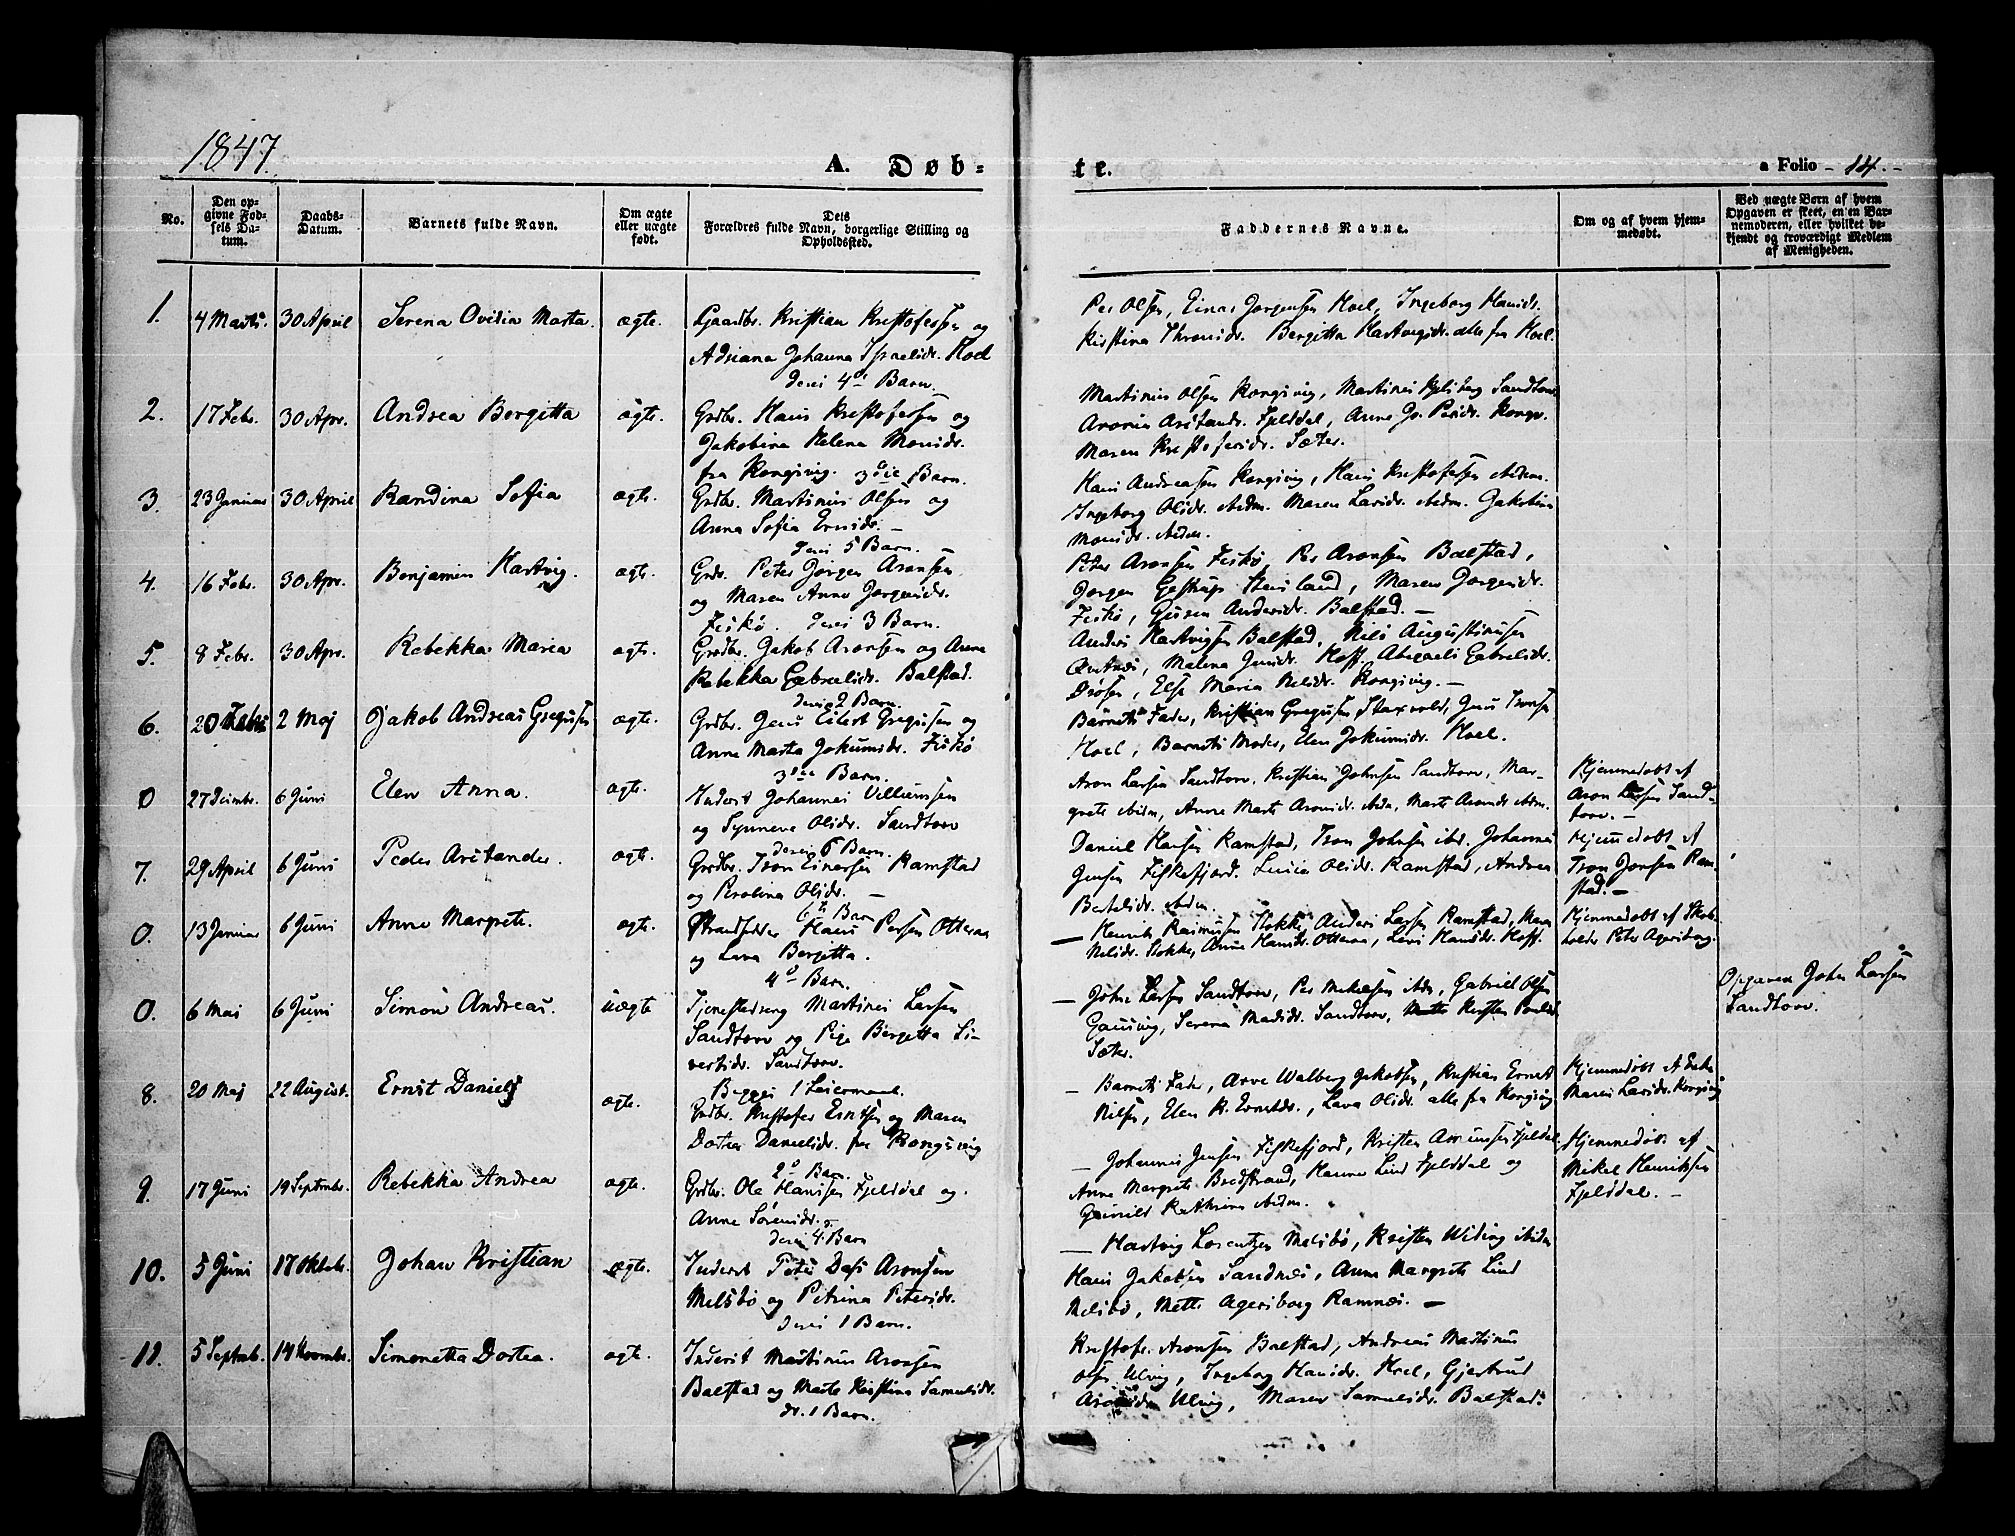 1847.
A. Døb-
te.
a Folio - 14. -
No.
Den op-
givne Fød-
sels Da-
tum.
Daabs-
Datum.
Barnets fulde Navn.
Om ægte
eller uægte
født.
Dets
Forældres fulde Navn, borgerlige Stilling og
Opholdssted.
Faddernes Navne.
Om og af hvem hjem-
medøbt.
Ved uægte Born af hvem
Opgaven er skeet, enen Bar-
nemoderen, eller hvilket be-
kjendt og troværdigt Medlem
af Menigheden.
1. 4 Marts. 30 April Serena Ovidia Marta. ægte.
Gaardbr. Kristian Kristofersen og
Adriana Johanna Israelsdr. Hoel
deres 4de Barn.
Per Olsen, Einar Jørgensen Hoel, Ingeborg Hansdr.
Kristina Thronsdr. Bergitta Hartvigsdr. alle fra Hoel.
2. 17 Febr. 30 Apr. Andrea Bergitta ægte.
Grdbr. Hans Kristofersen og
Jakobina Helena Monsdr.
fra Kongsvig. 3die Barn.
Martinus Olsen Kongsvig, Martines Sandtorv
Fjelddal, Anne Persdr. Kongsv.
Maren Kristofersdr. Sæter.
3. 23 Januar 30 April Randina Sofia ægte.
Grdbr. Martinus Olsen og
Anna Sofia -
deres 5 Barn.
Hans Andreasen Kongsvig, Hans Kristofersen ibidm.
Ingeborg Olsdr. ibidm. Maren Larsdr. ibidm. Jakobine
Monsdr. ibidm.
4. 16 Febr. 30 Apr. Benjamin Hartvig. ægte.
Grdbr. Peter Jørgen Aronsen
og Maren Anne Jørgensdr.
Fiskø. deres 3 Barn.
Peter Aronsen Fiskø, Per Aronsen Balstad,
Jørgen Steinsland, Maren Jørgensdr.
Fiskø, Andersdr. Balstad. -
5. 8 Febr. 30 Apr. Rebekka Maria ægte.
Grdbr. Jakob Aronsen og Anna
Rebekka Gabrielsdr. Balstad.
deres 2 Barn.
Anders Hartvigsen Balstad, Nils Augustinusen
Malena Jensdr. Hoff, Gabrielsdr.
Else Maria Nilsdr. Kongsvig. -
6. 20 Febr 2 Maj Jakob Andreas Gregusen ægte.
Grdbr. Jens Eilert Gregusen og
Anne Marta Jokumsdr. Fiskø
3die Barn.
Barnets Fader, Kristian Gregusen Jens Tronsen
Hoel, Barnets Moder, Elen Jokumsdr. Hoel.
0 27 Decmbr. 6 Juni Elen Anna. ægte.
Inderst Johannes Villumsen
og Synneva Olsdr. Sandtorv
deres 6 Barn.
Aron Larsen Sandtorv, Kristian Johnsen Sandtorv, Mar-
grete ibidm, Anne Marta Aronsdr. ibidm, Marta Aronsdr ibidm.
Hjemmedøbt af
Aron Larsen Sand-
torv. -
7. 29 April 6 Juni Peder Arstander. ægte.
Grdbr. Tron Einarsen Ramstad
og Perolina Olsdr. -
6te Barn
Daniel Hansen Ramstad, Tron Johnsen ibd. Johannes
Jensen Fiskefjord. Lucia Olsdr. Ramstad, Andrea
Bertelsdr. ibidm.
Hjemmedøbt af
Tron Jonsen Ram-
stad. -
0. 13 Januar 6 Juni Anne Margrete. ægte.
Strandsidder Hans Persen Otteraa
og Lava Bergitta.
4de Barn.
- Henrik Rasmusen Stokke, Anders Larsen Ramstad,
Nilsdr. Stokke, Anne Hansdr. Otteraa, Hansdr. Hoff.
Hjemmedøbt af Skole-
holder Peter Agersborg.
0. 6 Mai 6 Juni Simon Andreas. uægte
Tjenestedreng Martines Larsen
Sandtorv og Pige Bergitta Si-
vertsdr. Sandtorv.
Begges 1 Leiermaal.
- John Larsen Sandtorv, Per Mikelsen ibd., Gabriel Olsen
Gausvig, Serena Madsdr. Sandtorv, Kristen
Sæter.
Opgaven John Larsen
Sandtorv.
8. 20 Maj 22 August. Ernst Daniel ægte.
Grdbr. Kristofer Ernstsen og Maren
Dortea Danielsdr. fra Kongsvig
2det Barn.
- Barnets Fader, Arve Walberg Jakobsen, Kristian Ernst
Nilsen, Elen K. Ernstdr., Lava Olsdr. alle fra Kongsvig
Hjemmedøbt af Enke
Maren Larsdr. Kongsvig
9. 17 Juni 19 Septmbr. Rebekka Andrea ægte.
Grdbr. Ole Hansen Fjelddal og
Anne Sørensdr.
deres 4. Barn
- Johannes Jensen Fiskefjord, Kristen Fjeldal
Anne Margrete Bredstrand, Hanna Lind Fjelddal og
Gunnild Kathrina ibidm.
Hjemmedøbt af
Mikel Henriksen
Fjelddal. -
10. 5 Juni 17 Oktob. Johan Kristian ægte.
Inderst Peter Dass Aronsen
Melsbø og Petrina Petersdr.
deres 1 Barn.
- Hartvig Lorentzen Melsbø, Kristen Widing ibidm
Hans Jakobsen Sandnæs, Anne Margrete Lind
Melsbø, Mette Agersborg Ramnæs. -
11. 5 Septmb. 14 Novmbr. Simonetta Dortea. ægte.
Inderst Martinus Aronsen
Balstad og Marta Kristina Samuelsdr.
dr. 1 Barn.
Kristofer Aronsen Balstad, Andreas Martinus
Olsen Ulvig, Ingeborg Hansdr. Hoel, Gjertrud
Ulvig, Maren Samuelsdr. Balstad.